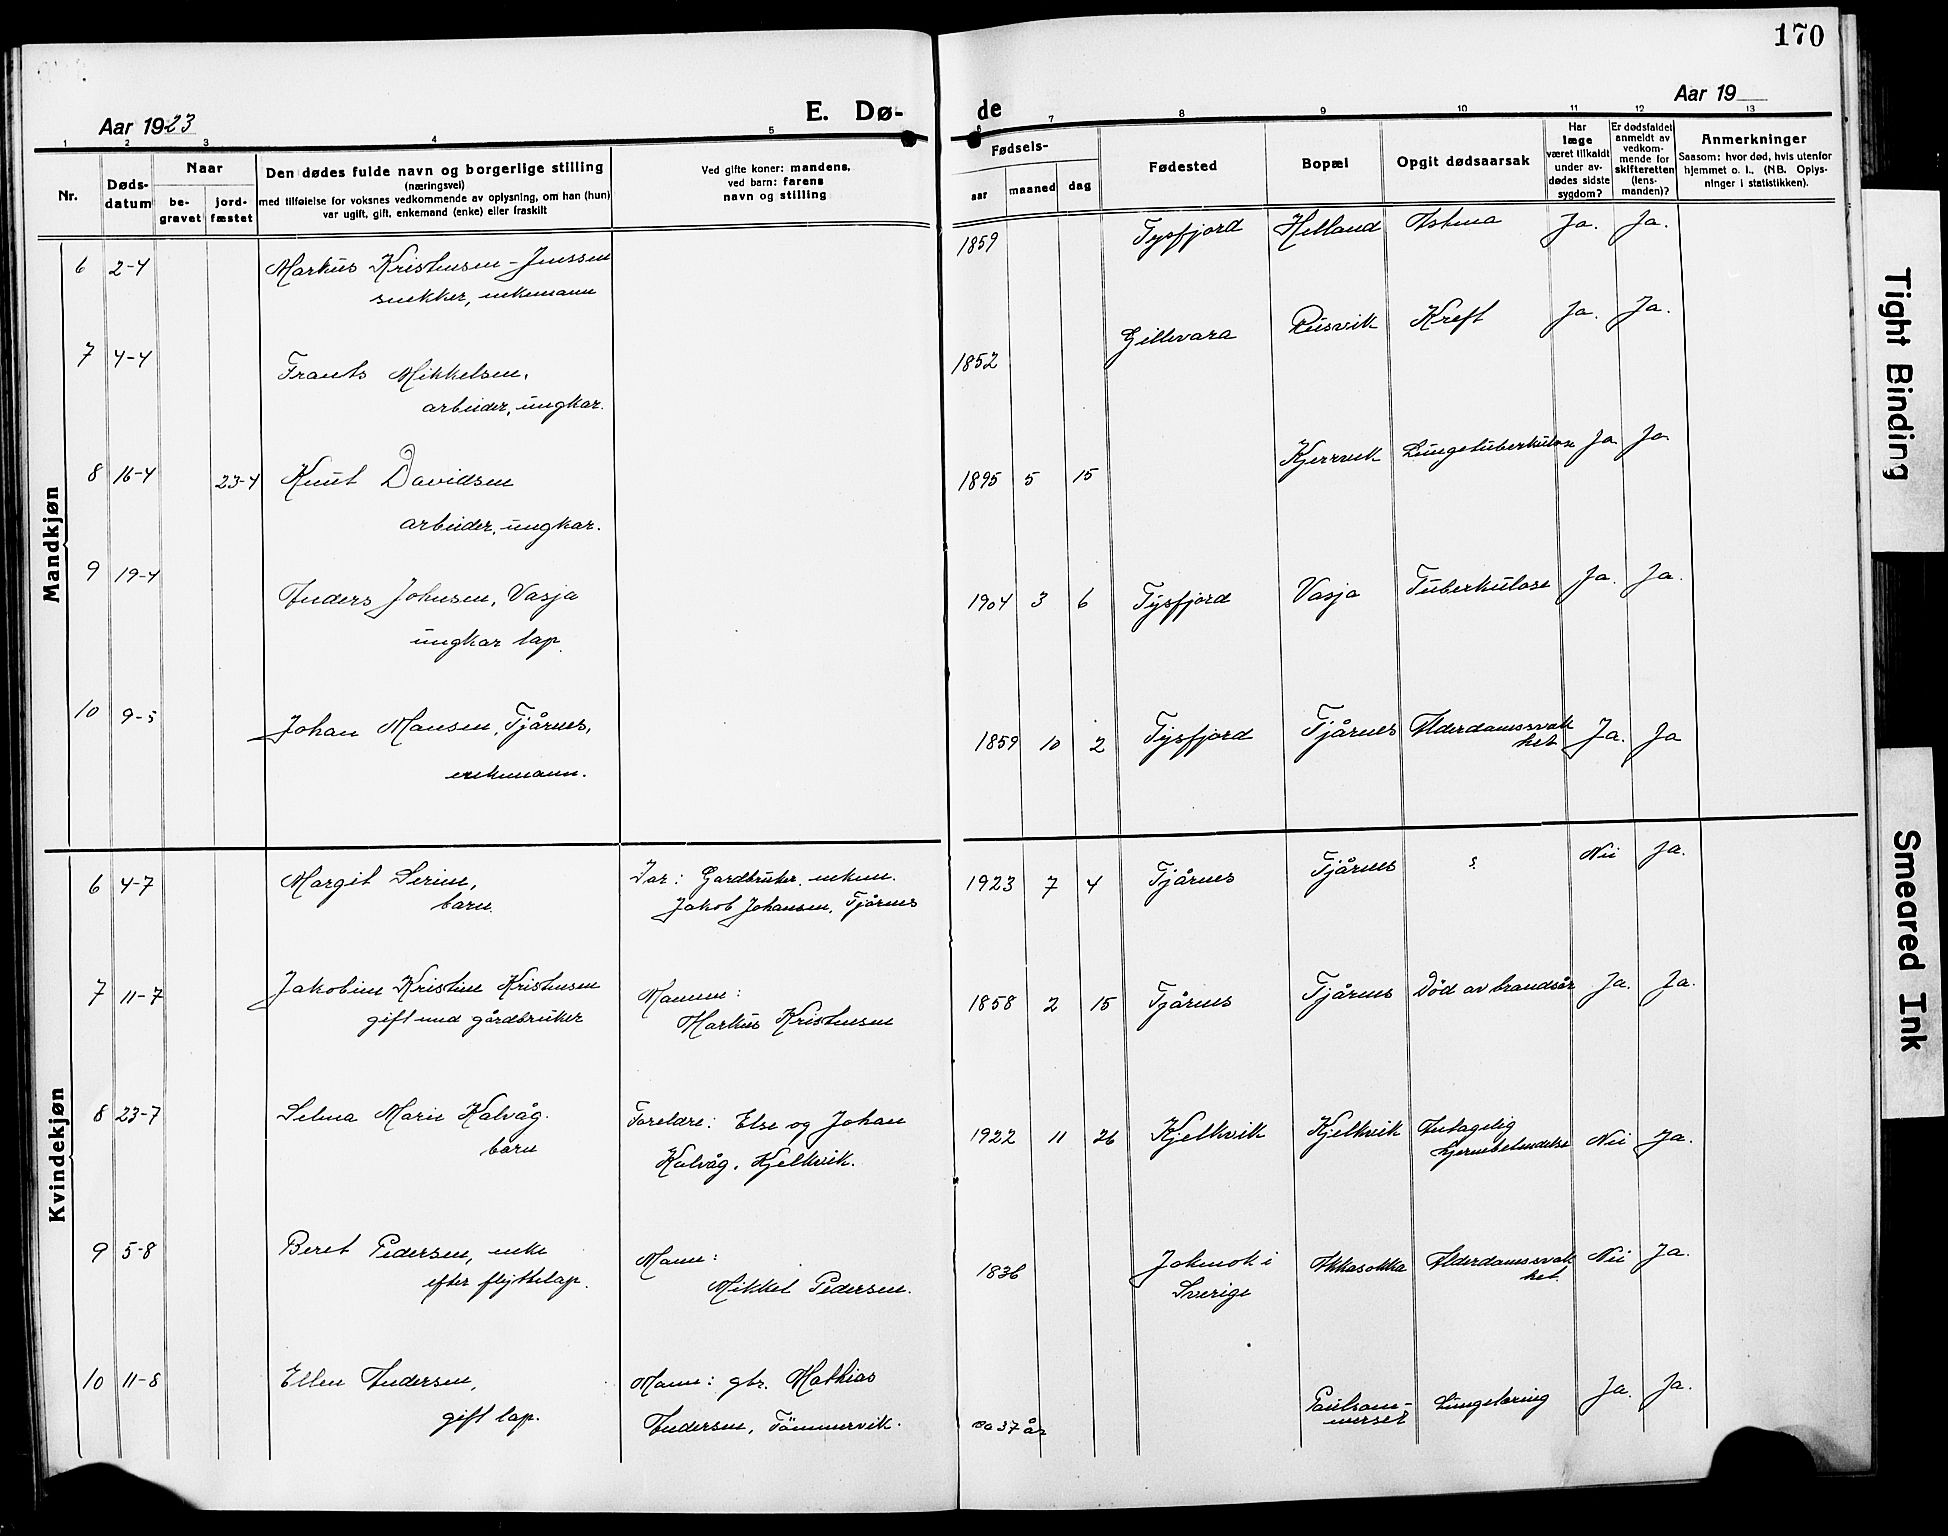 170
Aar 1923
E. Dø-
de
Aar 19
1 2 3 4 5 6 7 8 9 10 11 12 13
Nr.
Døds-
datum
Naar
be-
gravet
jord-
fæstet
Den dødes fulde navn og borgerlige stilling
(næringsvei)
med tilføielse for voksnes vedkommende av oplysning, om han (hun)
var ugift, gift, enkemand (enke) eller fraskilt
Ved gifte koner: mandens,
ved barn: farens
navn og stilling
Fødsels-
aar maaned dag
Fødested
Bopæl
Opgit dødsaarsak
Har
læge
været tilkaldt
under av-
dødes sidste
sygdom?
Er dødsfaldet
anmeldt av
vedkom-
mende for
skifteretten
(lens-
manden)?
Anmerkninger
Saasom: hvor død, hvis utenfor
hjemmet o. l., (NB. Oplys-
ninger i statistikken).
Mandkjøn
6 2-4 Markus Kristensen-Jenssen 1859 Tysfjord Helland Astma Ja. Ja.
snekker, enkemann
7 4-4 Frants Mikkelsen, 1852 Gellivara Rusvik Kreft Ja. Ja.
arbeider, ungkar.
8 16-4 23-4 Knut Davidsen 1895 5 15 Kjerrvik Lungetuberkulose Ja Ja
arbeider, ungkar.
9 19-4 Anders Johnsen, Vasja 1904 3 6 Tysfjord Vasja Tuberkulose Ja. Ja.
ungkar lap.
10 9-5 Johan Mansen, Tjårnes, 1859 10 2 Tysfjord Tjårnes Alderdomssvak
het Ja. Ja
enkemann.
Kvindekjøn
6 4-7 Margit Serine, Far: Gardbruker, enkem. 1923 7 4 Tjårnes Tjårnes ? Nei Ja.
barn. Jakob Johansen, Tjårnes
7 11-7 Jakobine Kristine Kristensen Mannen: 1858 2 15 Tjårnes Tjårnes Död av brandsår Ja. Ja.
gift med gårdbruker Markus Kristensen
8 23-7 Selma Marie Kalvåg. Foreldre: Else og Johan 1922 11 26 Kjelkvik Kjelkvik Antagelig
hjernebetendelse Nei Ja.
barn Kalvåg, Kjelkvik.
9 5-8 Beret Pedersen, enke Mann: 1836 Jokmok i
Sverige Akkasokka Alderdomssvak
het. Nei Ja.
efter flyttelap. Mikkel Pedersen.
10 11-8 Ellen Andersen, Mann: gbr. Mathias ca 37 år Lungetæring Ja. Ja.
gift lap. Andersen, Tömmervik.
Tight Binding
Smeared Ink